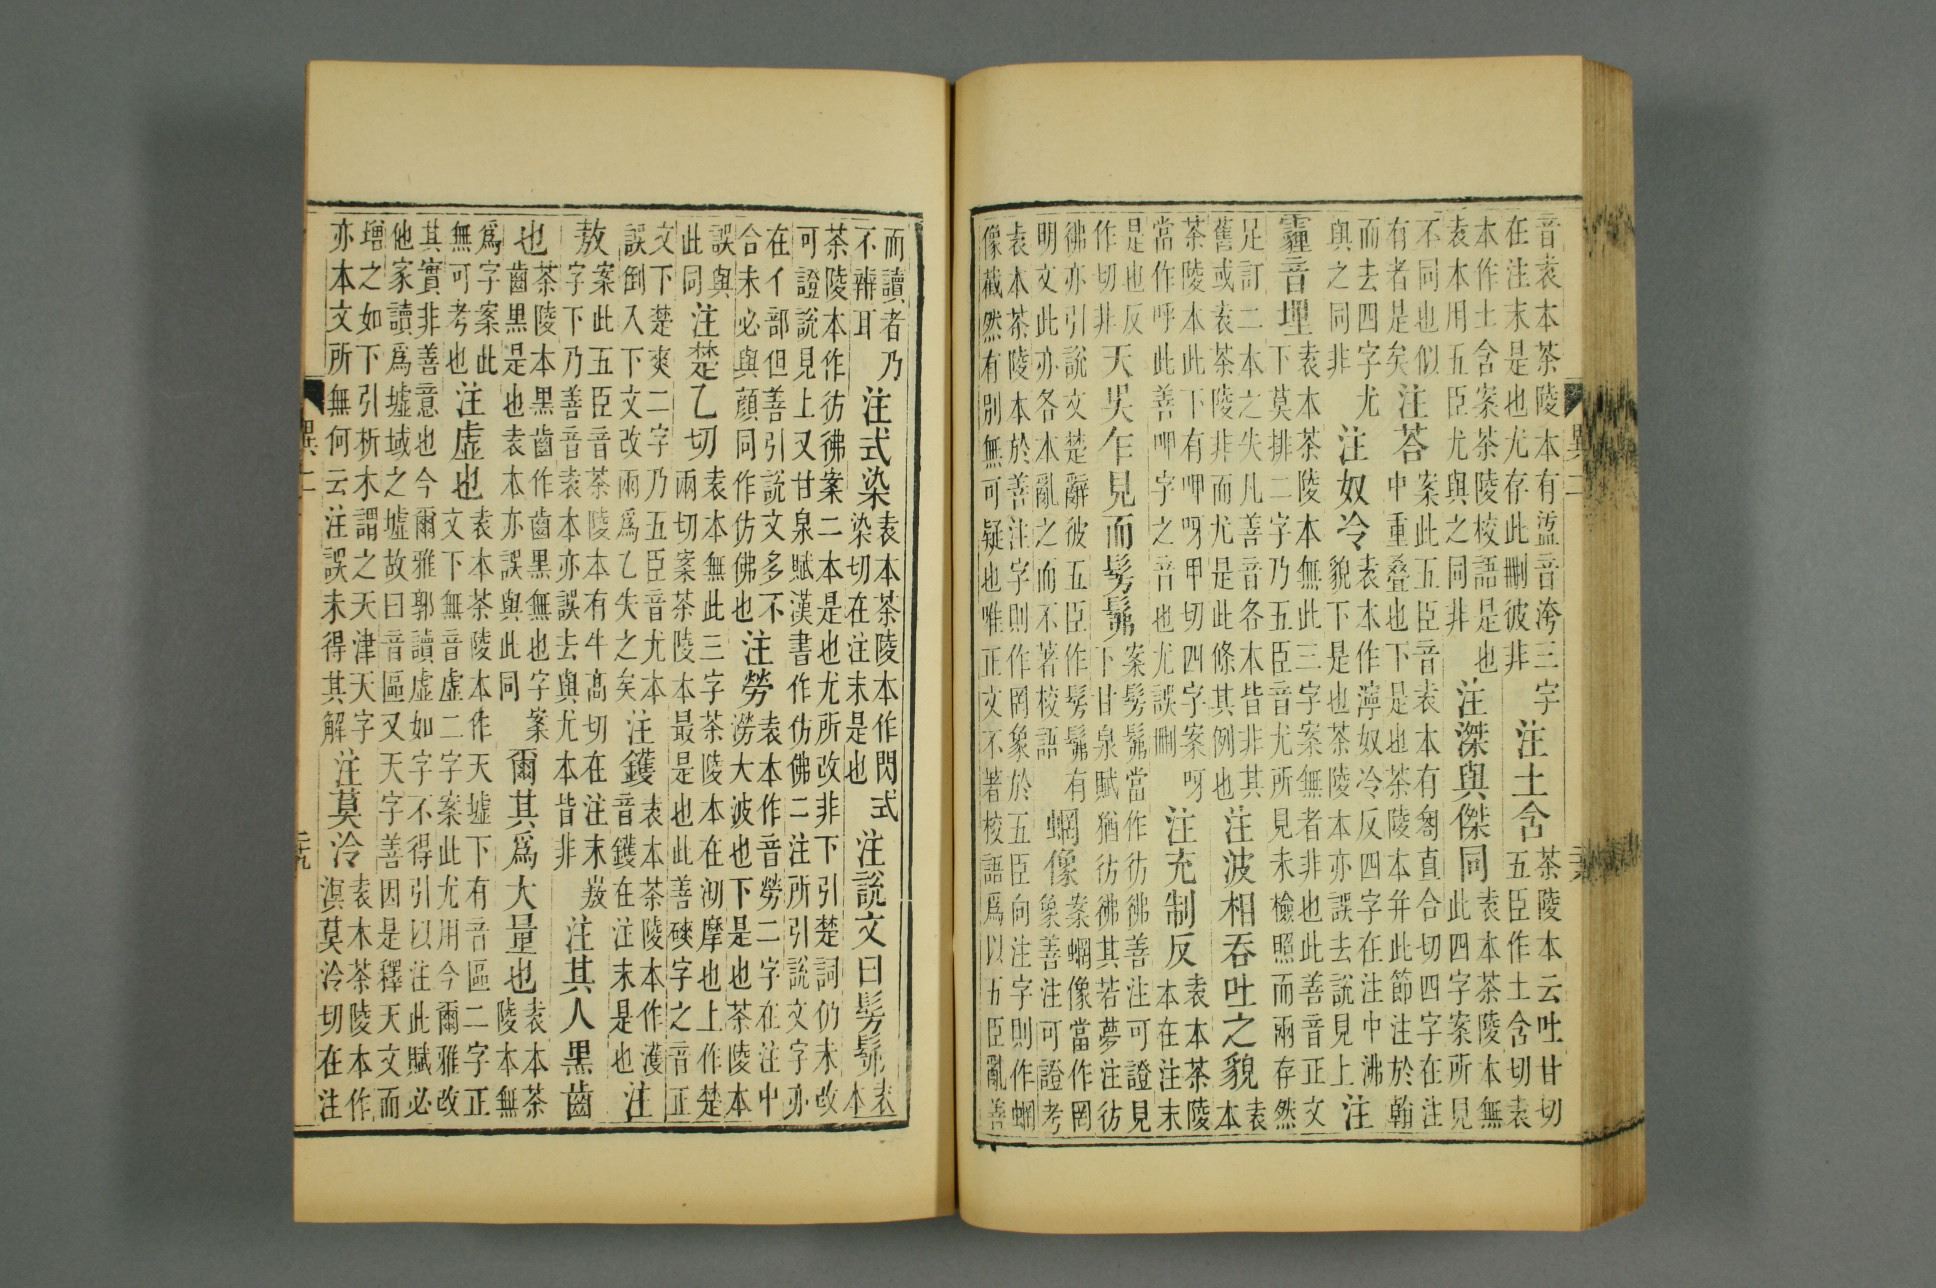 音袁本茶陵本有盓音洿三字
在注末是也尤存此刪彼非
注土含
茶陵本云吐甘切
五臣作土含切袁
本作土含案茶陵校語是也
袁本用五臣尤與之同非
注滐與傑同
袁本茶陵本無
此四字案所見
不同也似
有者是矣
注荅
案此五臣音袁本有匌直合切四字在注
中重疊也下是也茶陵本并此節注於翰
而去四字尤
與之同非
注奴冷
袁本作濘奴冷反四字在注中沸
貌下是也茶陵本亦誤去說見上
注
霾音埋
袁本茶陵本無此三字案無者非也此善音正文
下莫排二字乃五臣音尤所見未檢照而兩存然
足訂二本之失凡善音各本皆非其
舊或袁茶陵非而尤是此條其例也
注波相吞吐之貌
袁
本
茶陵本此下有呷呀甲切四字案呀
當作呼此善呷字之音也尤誤刪
注充制反
袁本茶陵
本在注末
是也反
作切非
天吳乍見而髣髴
案髣髴當作彷彿善注可證見
下甘泉賦猶彷彿其若夢注彷
彿亦引說文楚辭彼五臣作髣髴有
明文此亦各本亂之而不著校語
蝄像
案蝄像當作罔
象善注可證考
袁本茶陵本於善注字則作罔象於五臣向注字則作蝄
像截然有別無可疑也唯正文不著校語爲以五臣亂善
異二
而讀者乃
不辨耳
注式染
袁本茶陵本作閃式
染切在注末是也
注說文曰髣髴
袁
本
茶陵本作彷彿案二本是也尤所改非下引楚詞仍未改
可證說見上又甘泉賦漢書作仿佛二注所引說文字亦
在亻部但善引說文多不
合未必與顏同作仿佛也
注勞
袁本作音勞二字在注中
澇大波也下是也茶陵本
誤與
此同
注楚乙切
袁本無此三字茶陵本在沏摩也上作楚
兩切案茶陵本最是也此善磢字之音正
文下楚爽二字乃五臣音尤本
誤倒入下文改兩爲乙失之矣
注鑊
袁本茶陵本作濩
音鑊在注末是也
注
敖
案此五臣音茶陵本有牛高切在注末嶅
字下乃善音袁本亦誤去與尤本皆非
注其人黑齒
也
茶陵本黑齒作齒黑無也字案
齒黑是也袁本亦誤與此同
爾其爲大量也
袁本茶
陵本無
爲字案此
無可考也
注虛也
袁本茶陵本作天墟下有音區二字正
文下無音虛二字案此尤用今爾雅改
其實非善意也今爾雅郭讀虛如字不得引以注此賦必
他家讀爲墟域之墟故曰音區又天字善因是釋天文而
增之如下引析木謂之天津天字
亦本文所無何云注誤未得其解
注莫泠
袁本茶陵本作
溟莫泠切在注